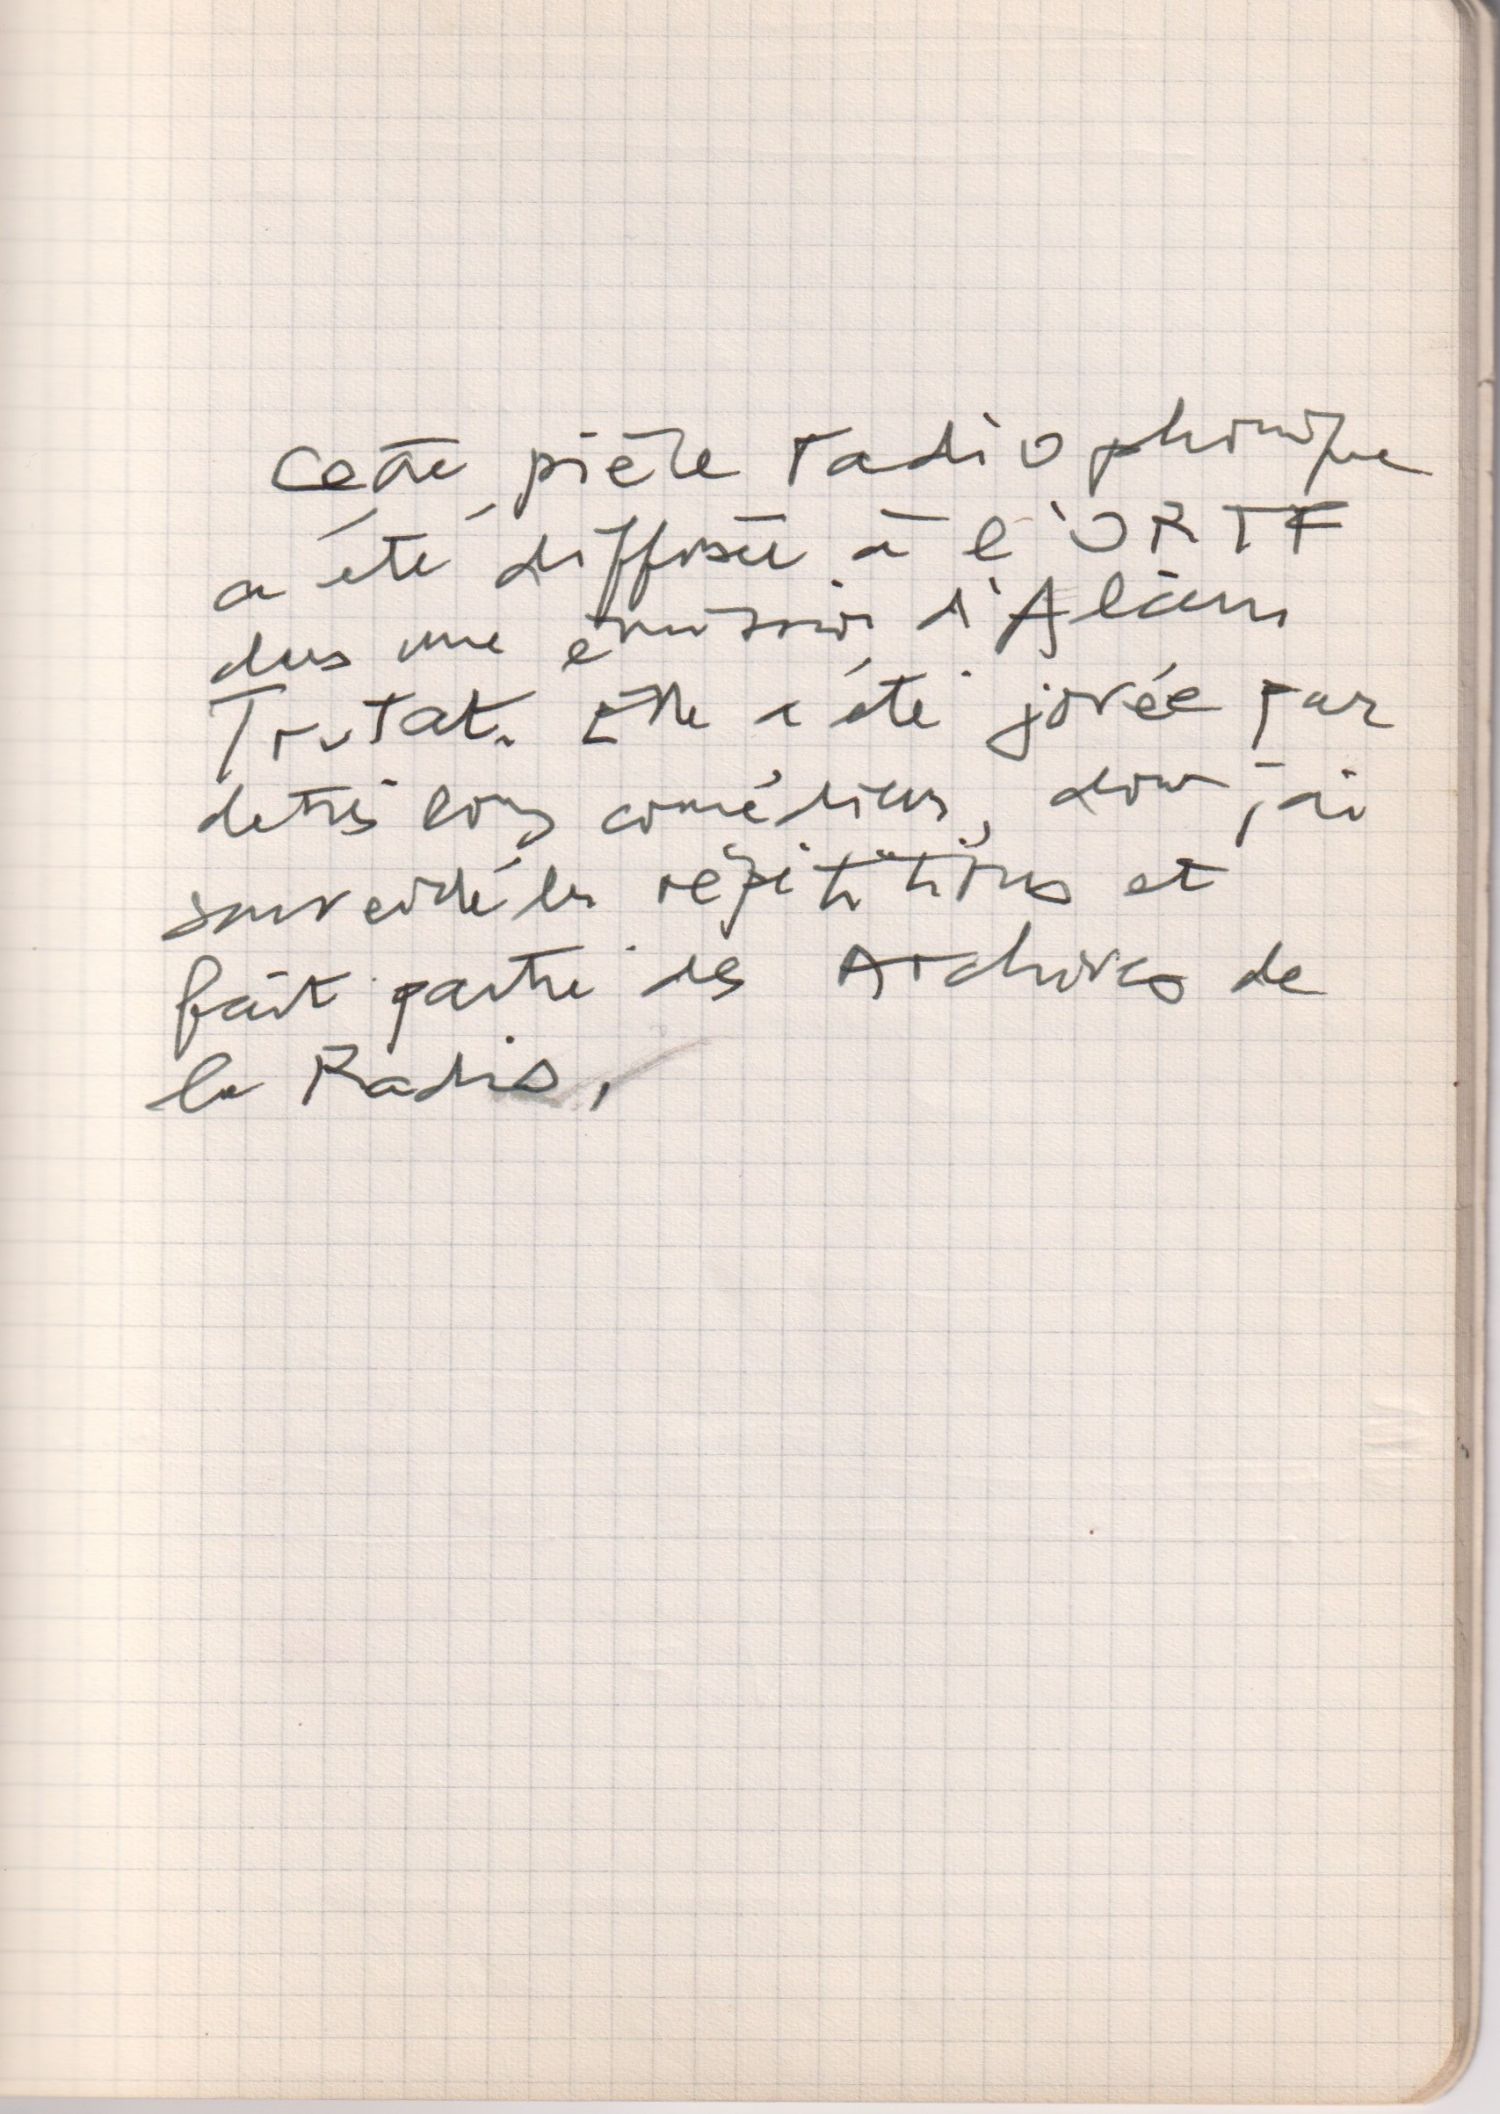 Cette pièce radiophonique
a été diffusée à l'ORTF
dans une émission d'Alain
Trutat. Elle a été jouée par
de très bons comédiens, dont j'ai
surveillé les répétitions et
fait partie des Archives de
la Radio.